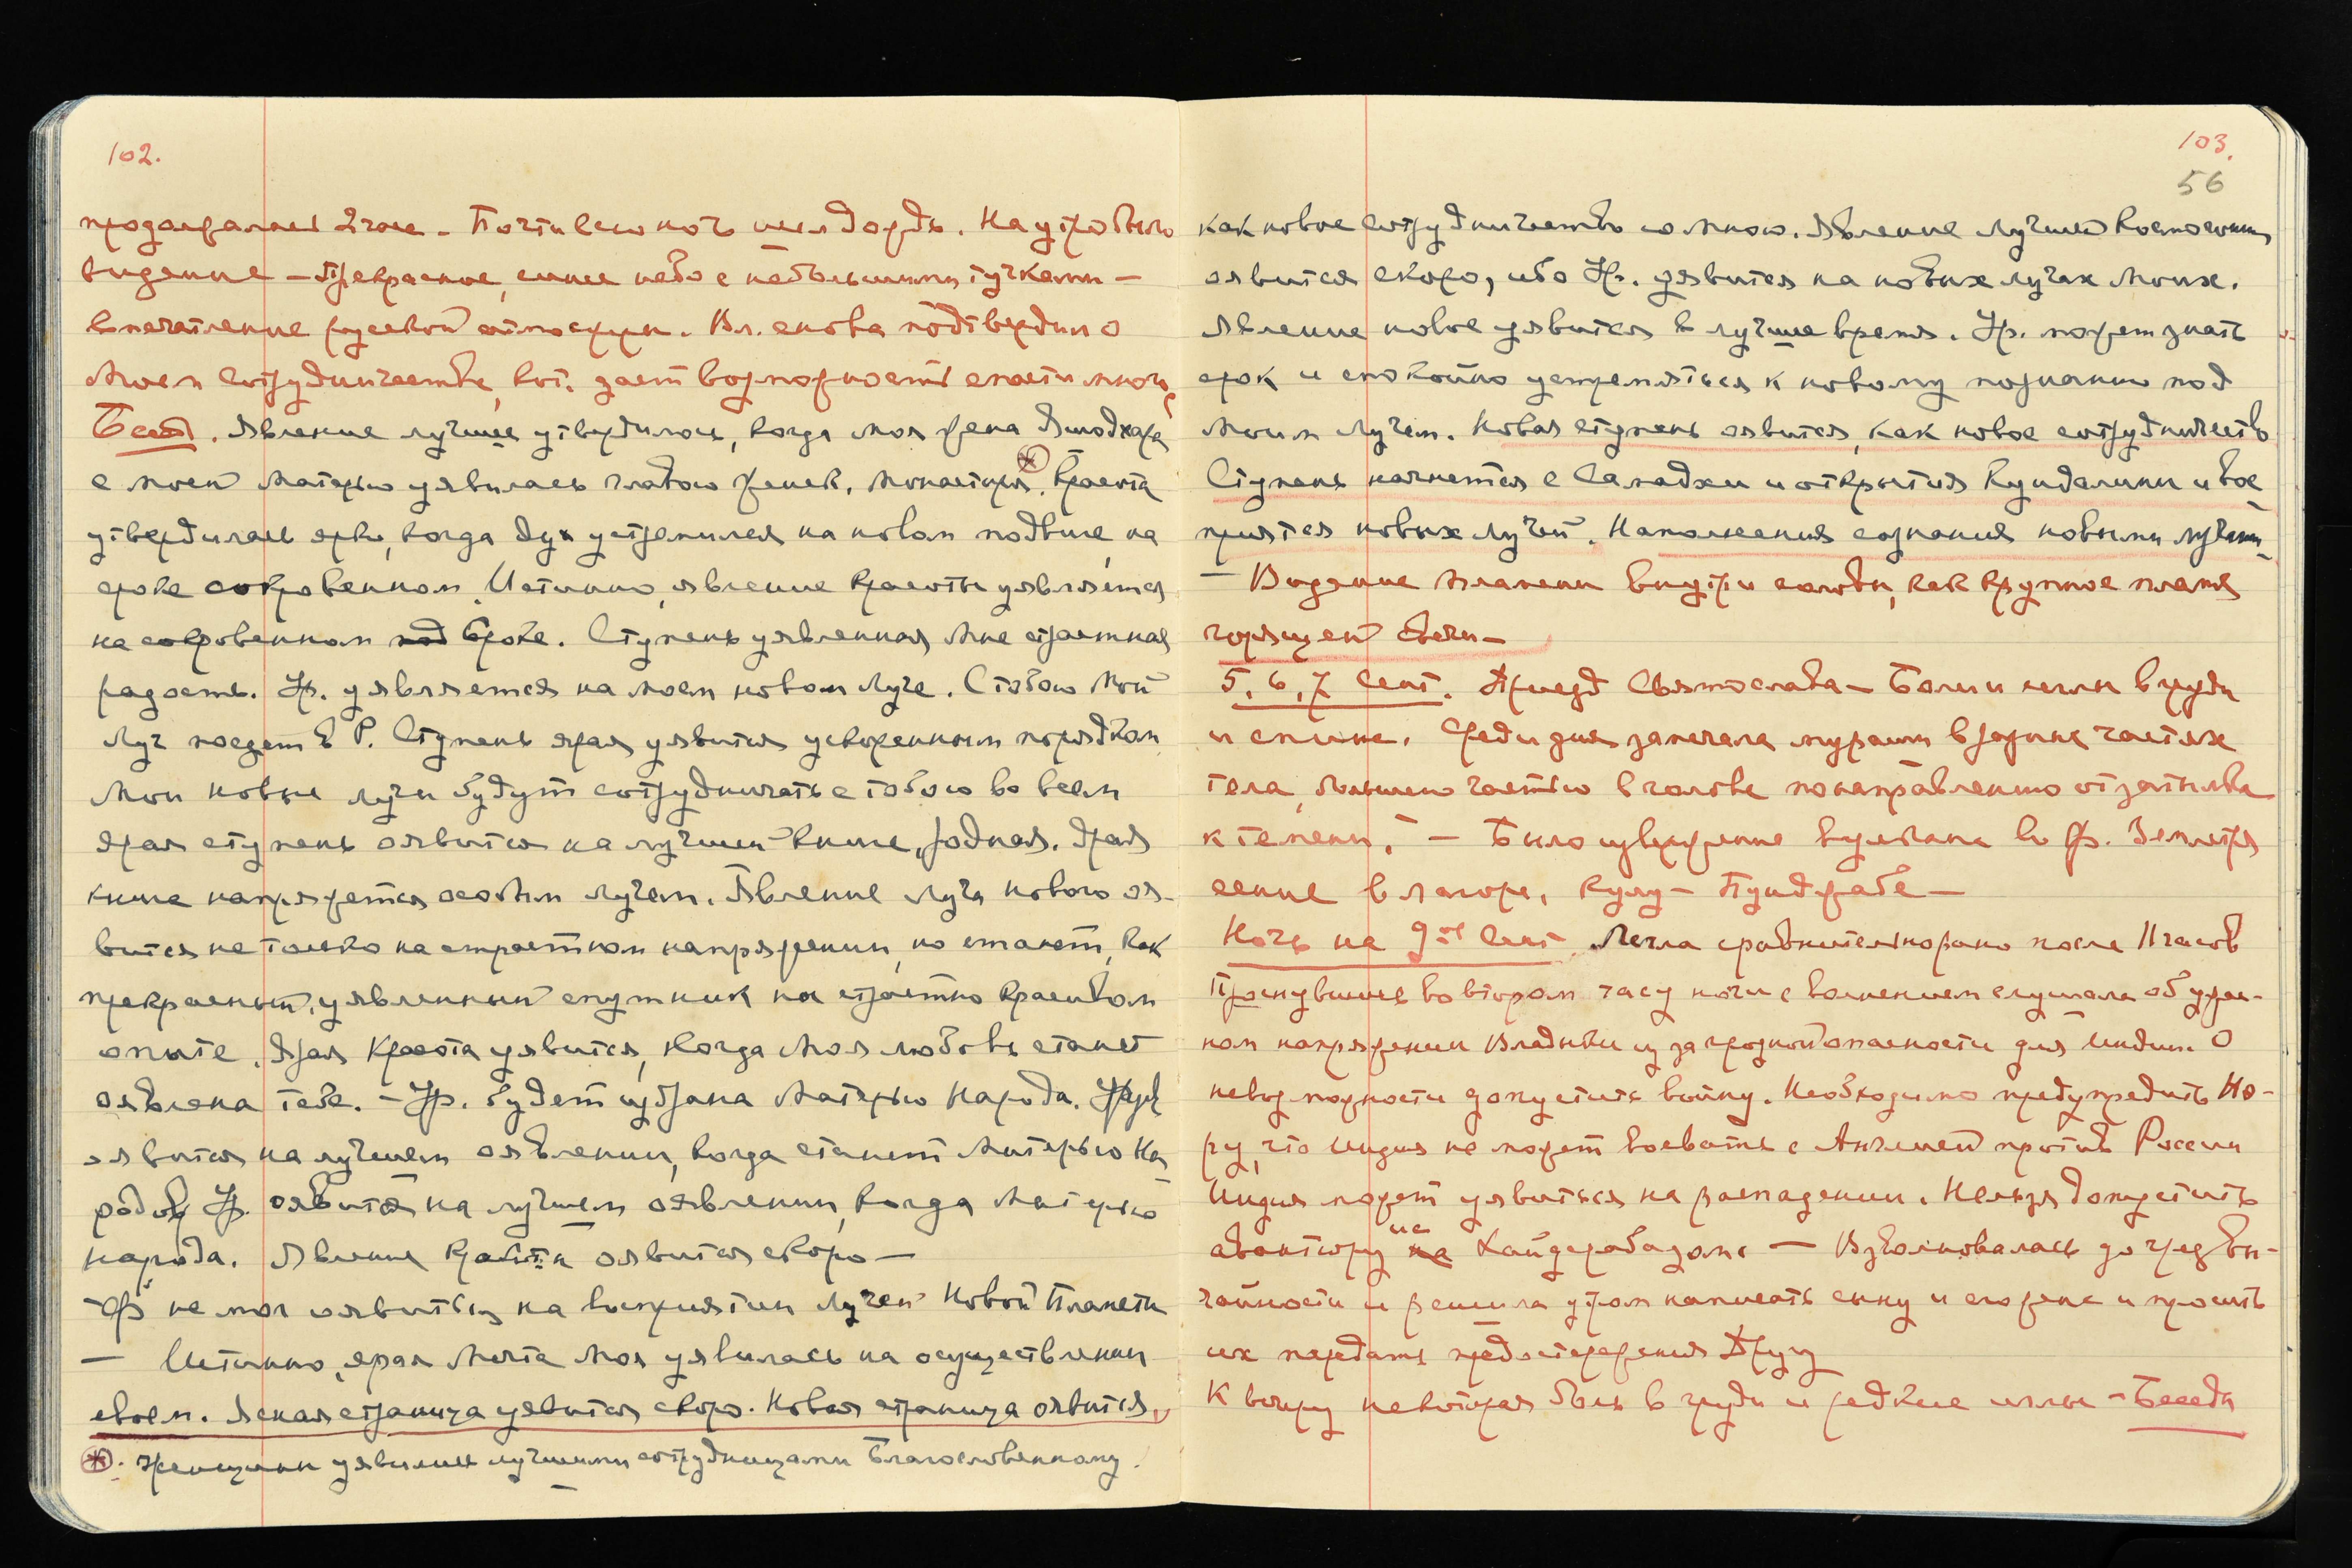 102.
продолжалось 2 часа. Почти всю ночь шел дождь. На утро было
видение – Прекрасное, синее небо с небольшими тучками –
впечатление русской атмосферы. Вл. снова подтвердил о
Моем Сотрудничестве, кот. дает возможность спасти много
Бесед. Явление лучшее утвердилось, когда моя жена Яшодхара
с моей Матерью уявилась главою женск. монастыря. ⊛ Красота
утвердилась ярко, когда дух устремился на новом подвиге, на
сроке сокровенном. Истинно, явление красоты уявляется
на сокровенном сроке. Ступень уявленная Мне страстная
радость. Ур. уявляется на моем новом Луче. С тобою Мой
Луч поедет в Р. Ступень ярая уявится ускоренным порядком
Мои новые лучи будут сотрудничать с тобою во всем
Ярая ступень оявится на лучшей книге, родная. Ярая
книга напряжется особым лучем. Явление Луча нового оя-
вится не только на страстном напряжении, но станет, как
прекрасный, уявленный спутник на страстно красивом
опыте. Ярая Красота уявится, когда Моя любовь станет
оявлена тебе. – Ур. будет избрана Матерью Народа.
оявится на лучшем оявлении, когда станет Матерью На
родов Ур. оявится на лучшем оявлении, когда Матерью
народа. Явление Красоты оявится скоро –
не мог оявиться на восприятии Лучей Новой Планеты
– Истинно, ярая Мечта Моя уявилась на осуществлении
своем. Ясная страница уявится скоро. Новая страница оявится,
⊛. Женщины уявились лучшими сотрудницами Благословенному.
103.
56
как новое сотрудничество со Мною. Явление Лучшей
оявится скоро, ибо Ур. уявится на новых лучах Моих.
Явление новое уявится в лучшее время. Ур. может знать
срок и спокойно устремляться к новому познанию под
Моим Лучем. Новая ступень оявится, как новое сотрудничество
Ступень начнется с Самадхи и открытия Кундалини и вос
приятия новых лучей. Наполнения сознания новыми лучами
– Видение пламени внутри, как крупное пламя
горящей свечи –
5, 6, 7 Сент. Приезд Святослава – Боли и иглы в груди
и спине. Среди дня замечала мурашки в разных частях
тела, большею частью в голове по направлению от затылка
к темени. – Было извержение вулкана. Землетря
сение в Лагоре, Кулу – Пунджабе –
Ночь на 9ое Сент. Легла сравнительно рано после 11 часов
Проснувшись во втором часу ночи с волнением слушала об ужас-
ном напряжении Владыки из за грозной опасности для Индии. О
невозможности допустить войну. Необходимо предупредить Не-
ру, что Индия не может воевать с Англией против России
Индия может уявиться на распадении. Нельзя допустить
авантюру на с Хайдерабадом. – Взволновалась до чрезвы-
чайности и решила утром написать сыну и его жене и просить
их передать предостережения Другу
К вечеру некоторая боль в груди и редкие иглы – Беседы